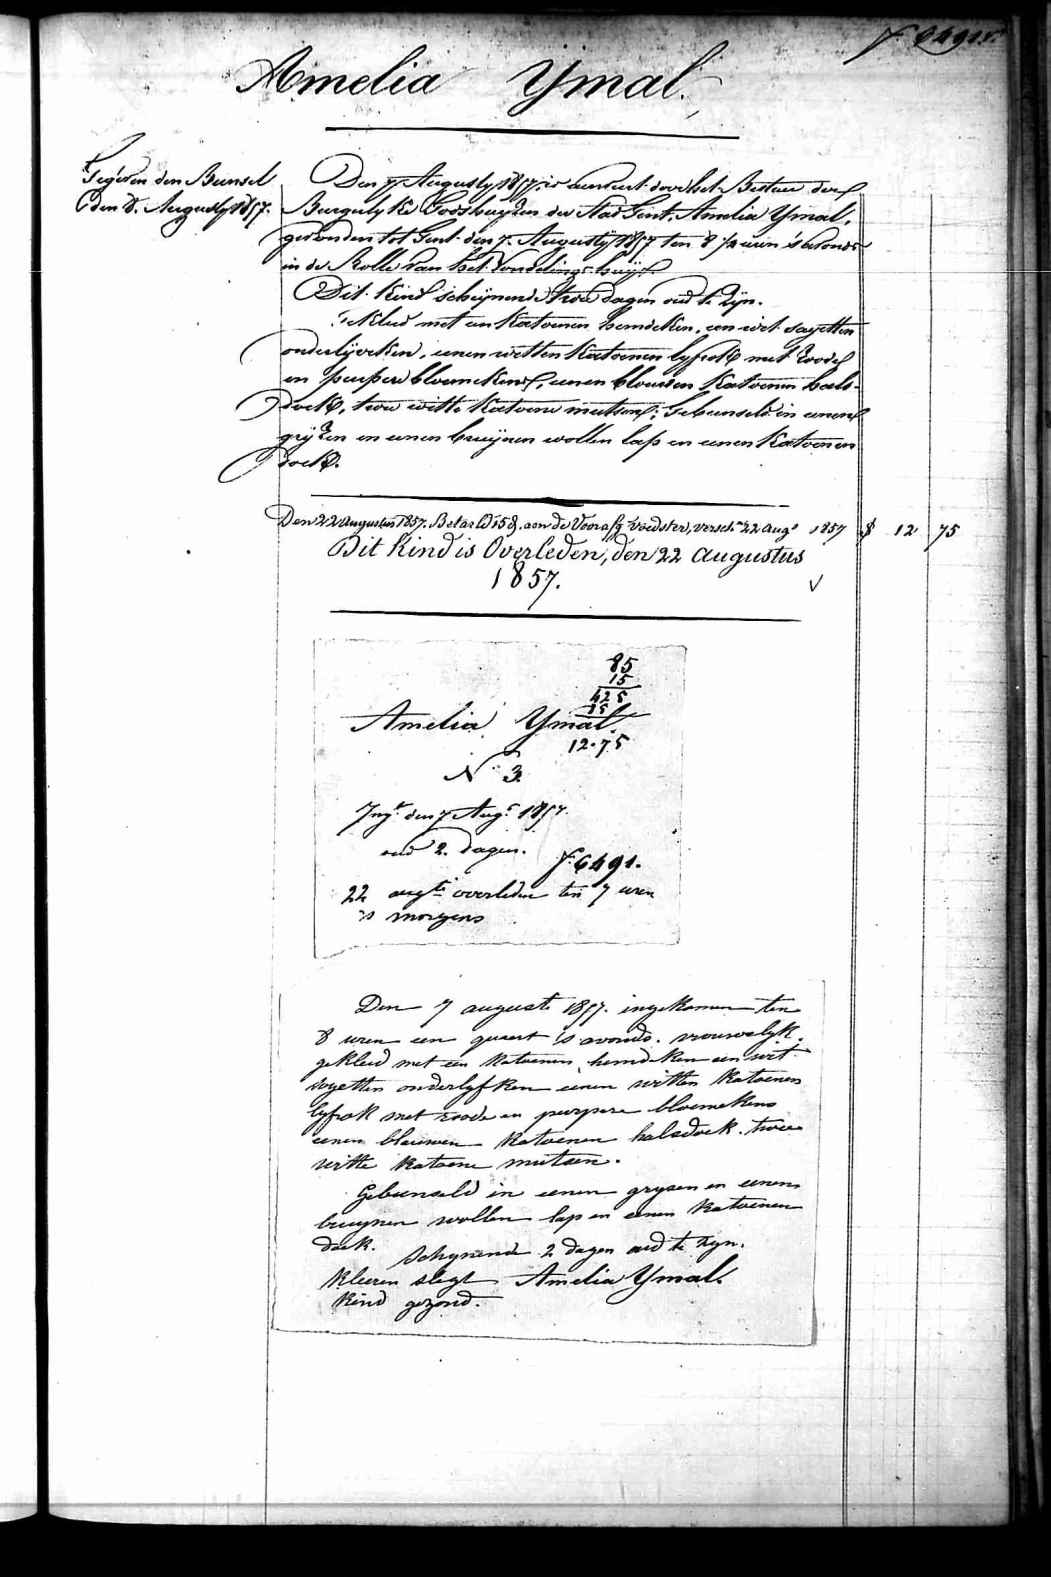 f° 6491.
Amelia Ymal.
Gegeven den Bunsel
den 8. Augusty 1857.
Den 7 Augusty 1857, is aenveert door het Bestuer der
Burgelyke Godshuyzen der Stad Gent, Amelia Ymal,
gevonden tot Gent den 7. Augusty 1857 ten 8 1/4 uren 's avonds
in de Rolle van het Vondelings-huys
Dit Kind scheynende twee dagen oud te zyn.
Gekleed met een Katoenen hemdeken, een wit sayetten
onderlyveken, eenen witten Katoenen lyfrok met roode
en purpere bloemekens, eenen blauwen Katoenen hals-
doek, twee witte Katoene mutsen; Gebunseld in eenen
gryzen en eenen bruynen wollen lap en eenen Katoenen
doek.
Den 22 Augustus 1857. Betaeld 15 d. aen de Voorafg voedster, versch. 22 Aug 1857 f 12 75
Dit Kind is Overleden, den 22 Augustus
1857.
85
15
425
85
Amelia Ymal.
12.75
N° 3.
Ing. den 7 Aug. 1857.
oud 2. dagen.
f° 6491.
22 augti overleden ten 7 uren
's morgens
Den 7 augusti 1857. ingekomen ten
8 uren een quaert 's avonds. vrouwelyk.
gekleed met een katoenen hemdeken een wit
sayetten onderlyfken eenen witten katoenen
lyfrok met roode en purpere bloemekens
eenen blauwen katoenen halsdoek. twee
witte katoene mutsen.
Gebunseld in eenen grysen en eenen
bruynen wollen lap en eenen katoenen
doek. Schynende 2 dagen oud te zyn.
kleeren slegt Amelia Ymal.
kind gezond.